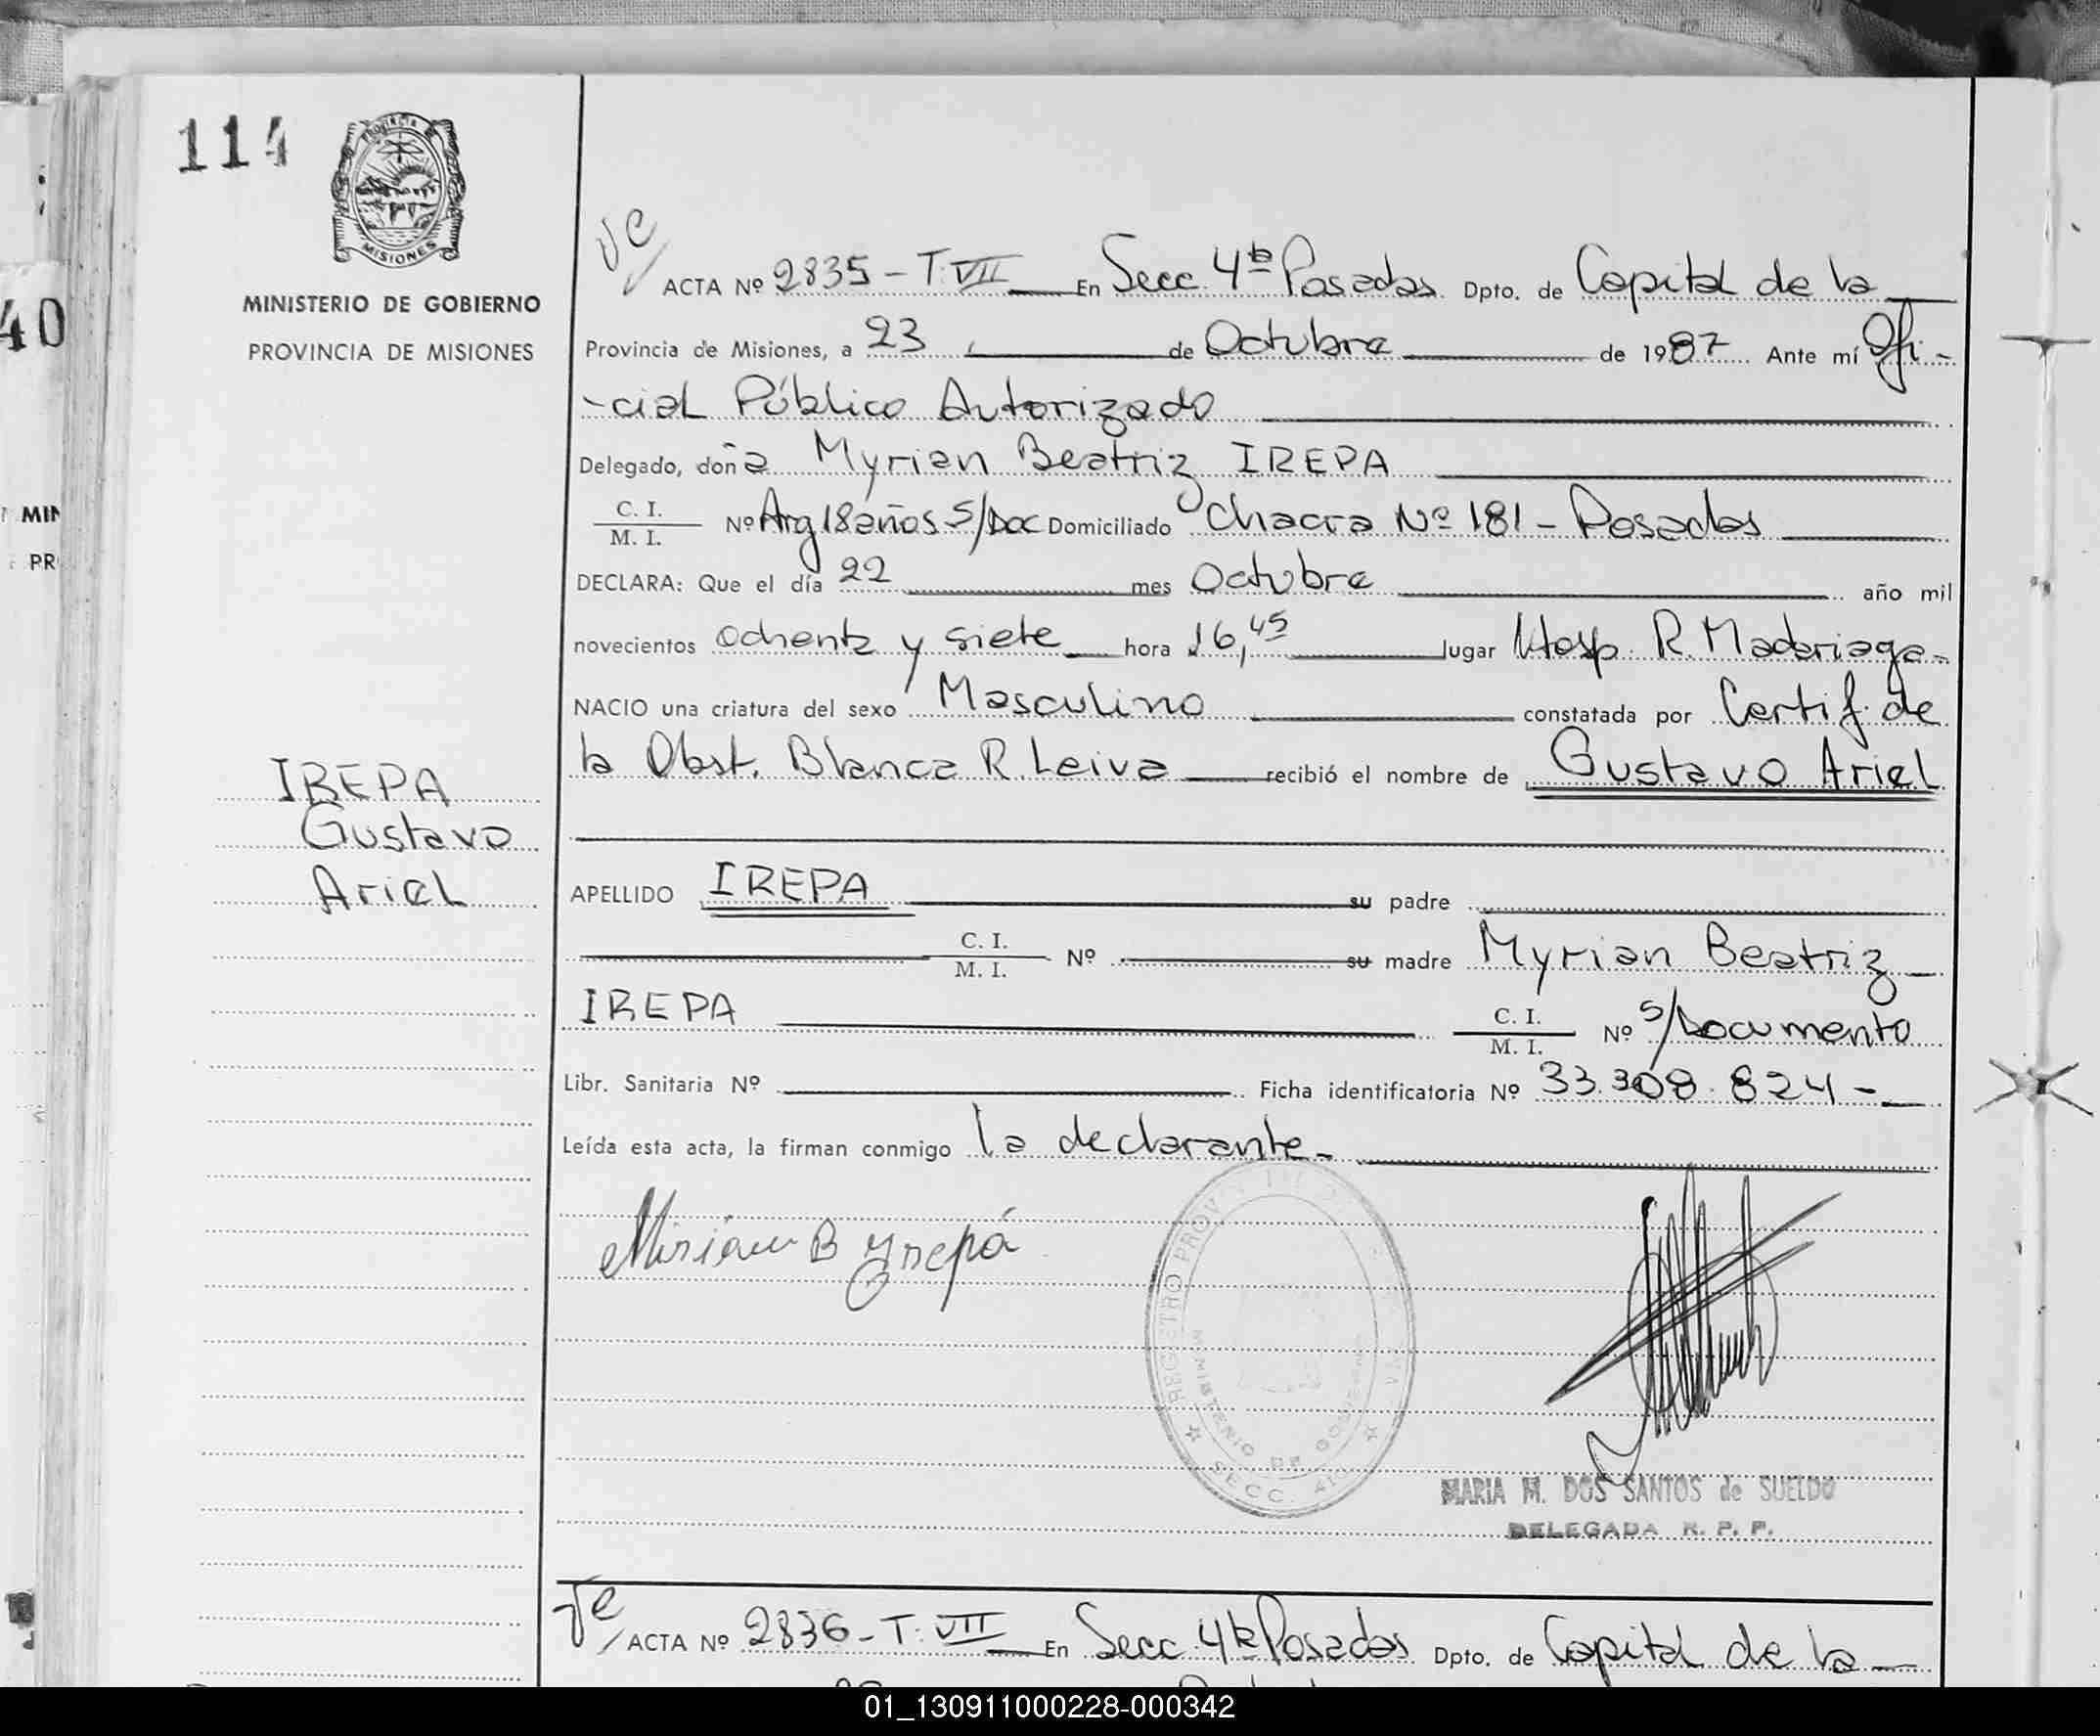 114
PROVINCIA DE
MISIONES
MINISTERIO DE GOBIERNO
PROVINCIA DE MISIONES
40
MIN
PR
IREPA
Gustavo
Ariel
ACTA Nº 2835 - T. VII En Secc. 4ta Posadas Dpto. de Capital de la
Provincia de Misiones, a 23 de Octubre de 1987 Ante mí Ofi-
-cial Público Autorizado
Delegado, doña Myrian Beatriz IREPA
C. I.
M. I. Nº Arg 18 años S/Doc Domiciliado Chacra Nº 181 - Posadas
DECLARA: Que el día 22 mes Octubre año mil
novecientos ochenta y siete hora 16,45 lugar Hosp. R. Madariaga-
NACIO una criatura del sexo Masculino constatada por Certif. de
la Obst. Blanca R. Leiva recibió el nombre de Gustavo Ariel
APELLIDO IREPA su padre
C. I.
M. I. Nº su madre Myrian Beatriz
IREPA C. I.
M. I. Nº S/Documento
Libr. Sanitaria Nº Ficha identificatoria Nº 33.308.824-
Leída esta acta, la firman conmigo la declarante-
Miriam B Yrepá
REGISTRO PROV
MINISTERIO DE GOBIERNO
SECC. 4ta
MARIA M. DOS SANTOS de SUELDO
DELEGADA R. P. P.
ACTA Nº 2836 - T. VII En Secc. 4ta Posadas Dpto. de Capital de la
01_130911000228-000342